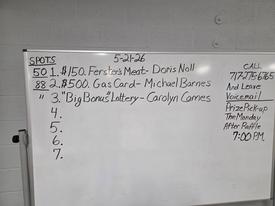 SPOTS
5-21-26
50 1. $150. Ferster's Meat - Doris Noll
88 2. $500. Gas Card - Michael Barnes
" 3. "Big Bonus" Lottery - Carolyn Comes
4.
5.
6.
7.
CALL
717-275-6765
And Leave
Voicemail
Prize Pick-up
The Monday
After Raffle
7:00 P.M.